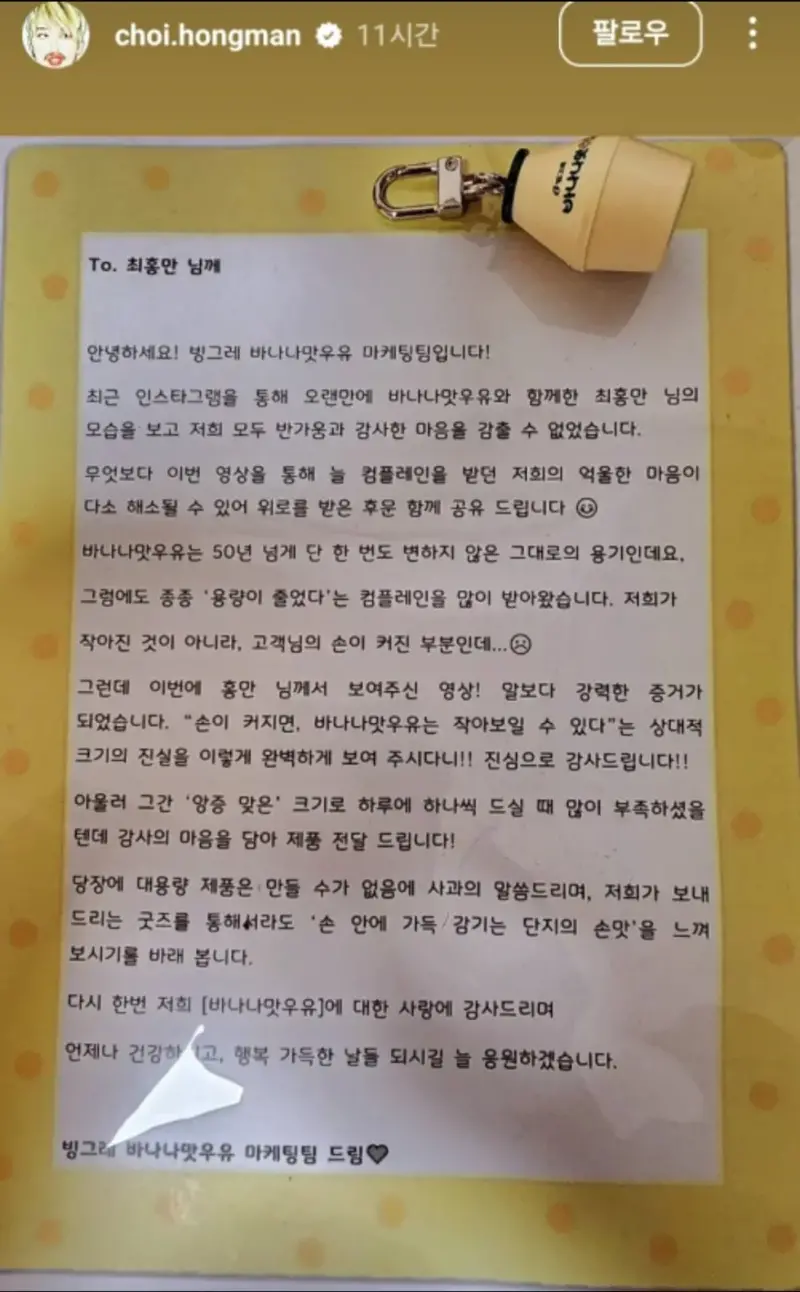 choi.hongman 11시간 팔로우
바나나맛
To. 최홍만 님께
안녕하세요! 빙그레 바나나맛우유 마케팅팀입니다!
최근 인스타그램을 통해 오랜만에 바나나맛우유와 함께한 최홍만 님의
모습을 보고 저희 모두 반가움과 감사한 마음을 감출 수 없었습니다.
무엇보다 이번 영상을 통해 늘 컴플레인을 받던 저희의 억울한 마음이
다소 해소될 수 있어 위로를 받은 후문 함께 공유 드립니다 😃
바나나맛우유는 50년 넘게 단 한 번도 변하지 않은 그대로의 용기인데요,
그럼에도 종종 ‘용량이 줄었다’는 컴플레인을 많이 받아왔습니다. 저희가
작아진 것이 아니라, 고객님의 손이 커진 부분인데...☹
그런데 이번에 홍만 님께서 보여주신 영상! 말보다 강력한 증거가
되었습니다. “손이 커지면, 바나나맛우유는 작아보일 수 있다”는 상대적
크기의 진실을 이렇게 완벽하게 보여 주시다니!! 진심으로 감사드립니다!!
아울러 그간 ‘앙증 맞은’ 크기로 하루에 하나씩 드실 때 많이 부족하셨을
텐데 감사의 마음을 담아 제품 전달 드립니다!
당장에 대용량 제품은 만들 수가 없음에 사과의 말씀드리며, 저희가 보내
드리는 굿즈를 통해서라도 ‘손 안에 가득 감기는 단지의 손맛’을 느껴
보시기를 바래 봅니다.
다시 한번 저희 [바나나맛우유]에 대한 사랑에 감사드리며
언제나 고, 행복 가득한 날들 되시길 늘 응원하겠습니다.
빙그레 바나나맛우유 마케팅팀 드림🖤